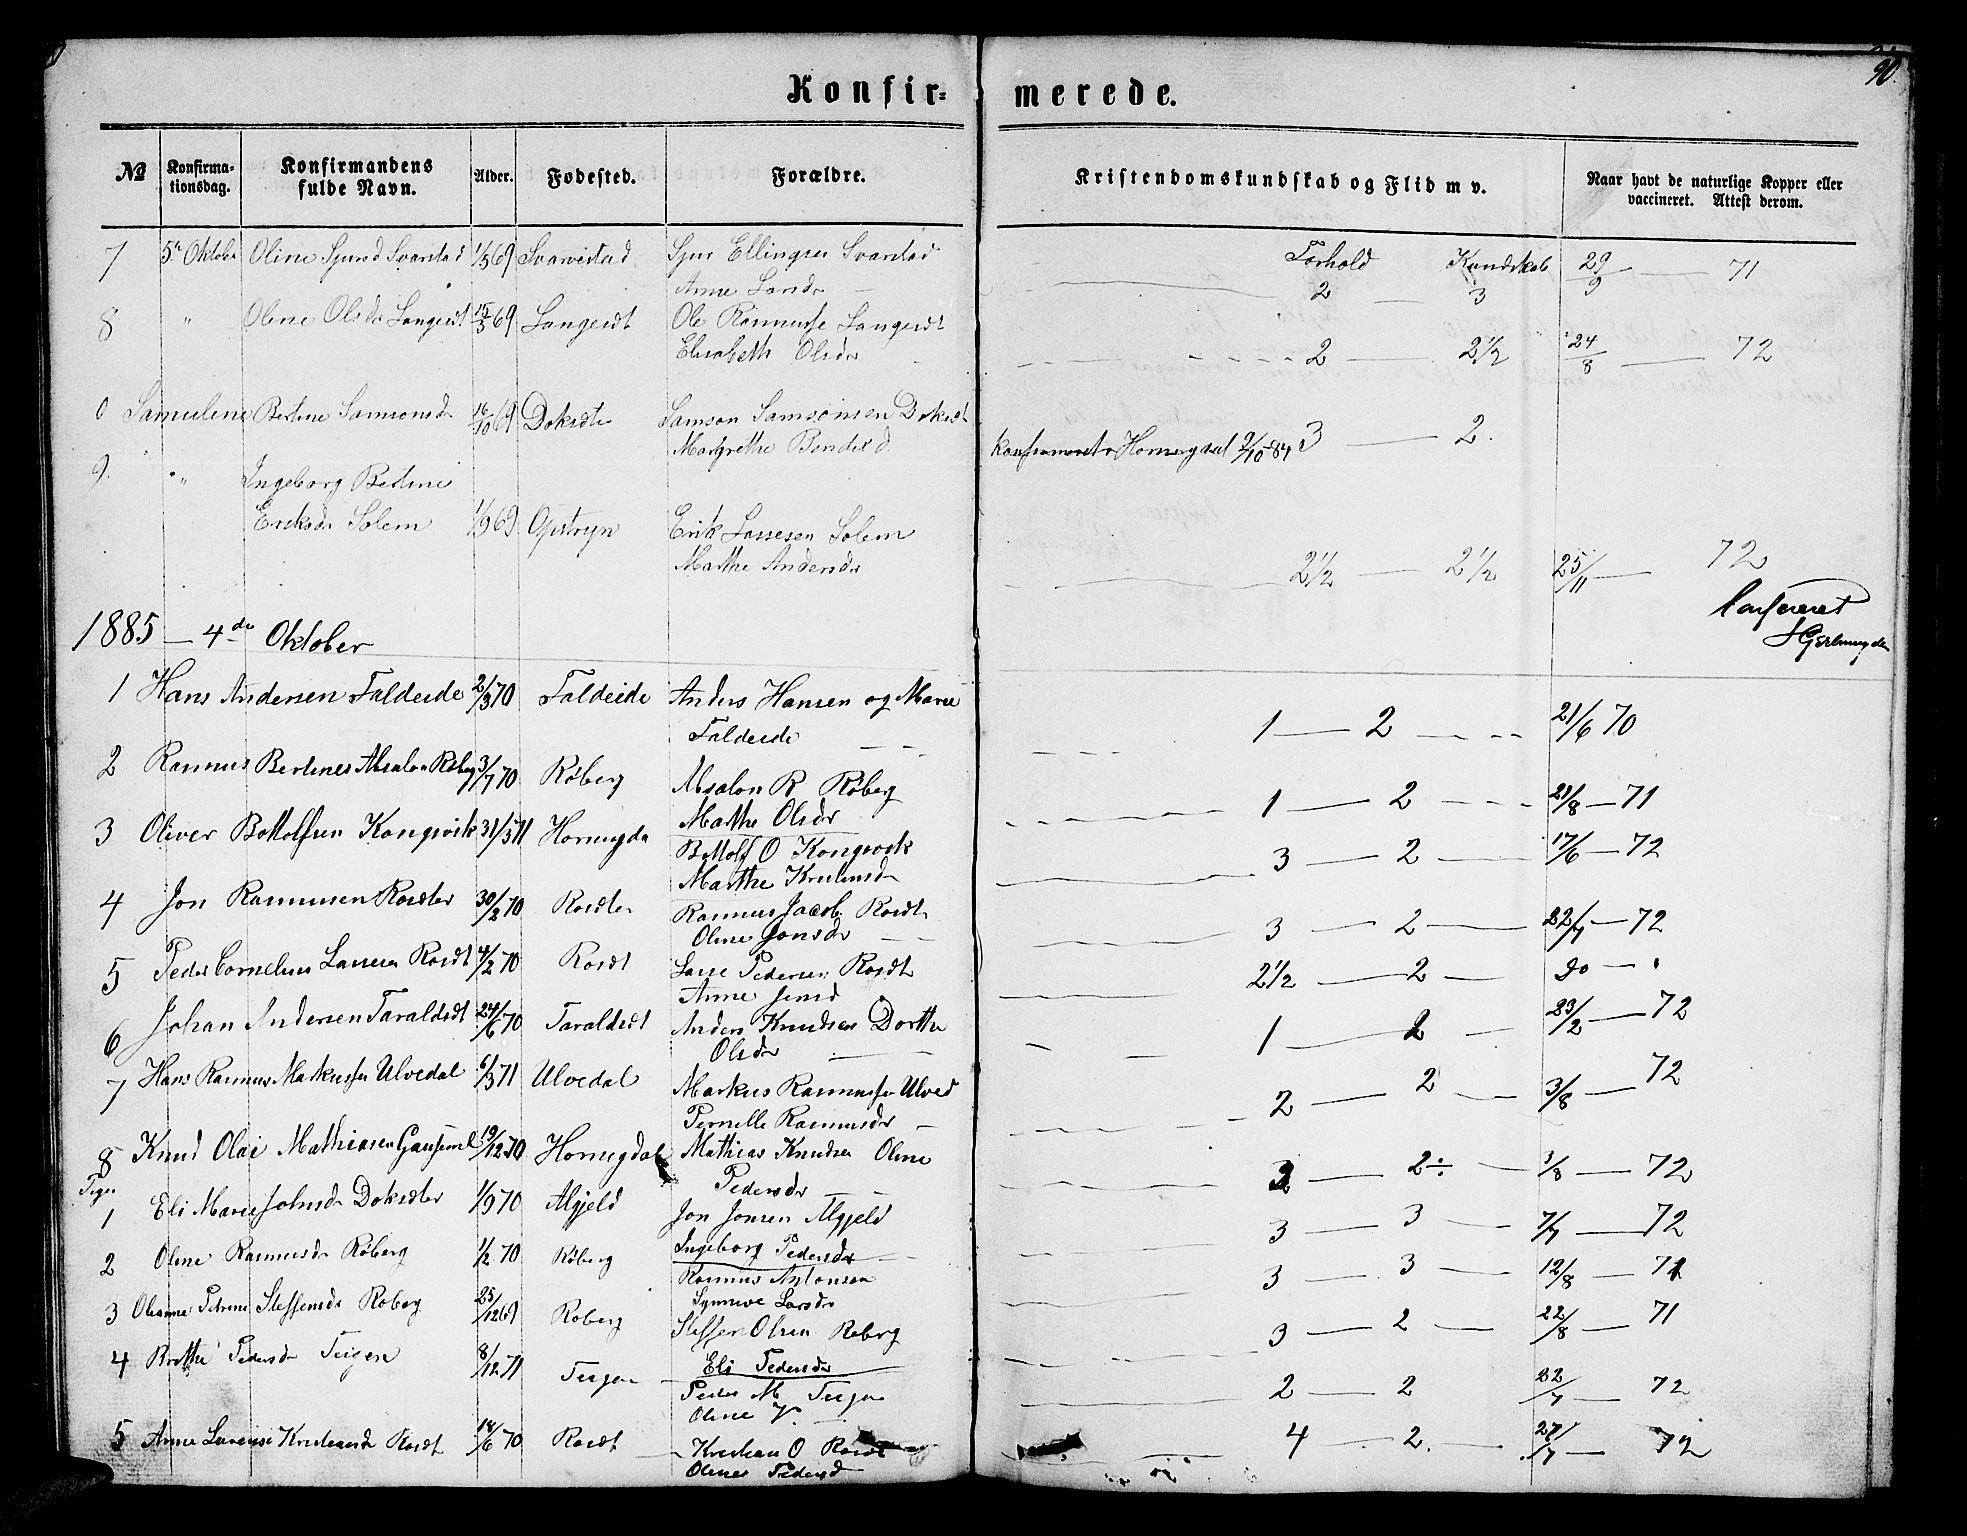 90.
Konfir= merede.
№ Konfirma-tionsdag. Konfirmandens fulde Navn. Alder. Fødested. Forældre. Kristendomskundskab og Flid m v. Naar havt de naturlige Kopper eller vaccineret. Attest derom.
7 5te Oktober Oline Sjursd Svarstad 1/5 69 Svarvestad Sjur Ellingsen Svarstad Forhold Kundskab 29/9 — 71
Anne Larsdr 2 — 3
8 " Oline Olsdr Langesdt 15/3 69 Langesdt Ole Rasmusse Langesdt
Elisabeth Olsdr 2 — 2 1/2 24/8 — 72
0 Samuline Bertine Samsonsdr 16/10 69 Doksdtr Samson Samsonsen Doksdt
Margrethe Bendixd. Konfirmeret i Hornigdal 9/10-84 3 — 2.
9. " Ingeborg Bertine
Eriksdr Solem 1/9 69 Opstryn Erik Lassesen Solem
Marthe Andersdr 2 1/2 — 2 1/2 25/11 — 72
Confereret
1885 — 4de Oktober
1 Hans Andersen Faldeide 2/3 70 Faldeide Anders Hansen og Marie
Faldeide 1 — 2 21/6 70
2 Rasmus Bertines Absalon Röberg 3/7 70 Röberg Absalon R Röberg
Marthe Olsdr 1 — 2 21/8 — 71
3 Oliver Bottolfsen Kongsvik 31/3 71 Hornigda Bottolf O Kongsvik
Marthe 3 — 2 17/6 — 72
4 Jon Rasmusen Rosdter 30/2 70 Rosdter Rasmus Jacob. Rosdt
Oline Jonsdr 3 — 2 22/7 — 72
5 Peder Cornelius Lassesen Rosdt 4/2 70 Rosdt Lasse Pedersen Rosdt
Anne Jensd 2 1/2 — 2 — do — "
6 Johan Andersen Taraldsdt 24/6 70 Taraldsdt Anders Knudsen Dorthe
Olsdr 1 — 2 23/2 — 72
7 Hans Rasmus Markussen Ulvedal 6/3 71 Ulvedal Markus Rasmussen Ulved
Pernille Rasmusdr 2 — 2 3/8 — 72
8 Knud Olai Mathiasen 19/12 70 Hornigdal Mathias Knudsen Oline
Pedersdr 2 — 2÷ 3/8 — 72
Piger
1 Eli Marie Johnsdr Doksdter 1/9 70 Algjeld Jon Jonsen Algjeld
Ingeborg Pedersdr 3 — 3 7/7 — 72
2 Oline Rasmusdr Röberg 1/2 70 Röberg Rasmus Antonsen
Synneve Larsdr 3 — 3 12/8 — 71
3 Oleanne Petrine Steffensdr Roberg 25/12 69 Roberg Steffen Olsen Roberg
Eli Pedersdr 3 — 2 22/8 — 71
4 Brithe Pedersdr Teigen 8/12 71 Teigen Peder M. Teigen
Oline 2 — 2 22/7 — 72
5 Anne Lovense Kristiansdr Rosdt 14/6 70 Rosdt Kristian O Rosdt
Oline Pedersd 4 — 2. 27/7 — 72